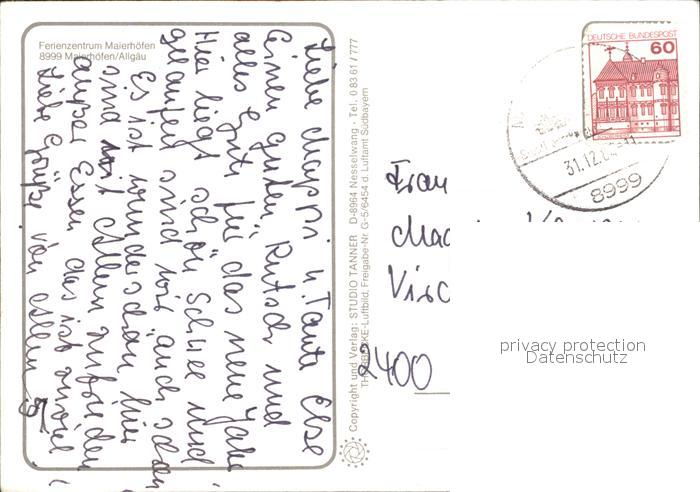 Ferienzentrum Maierhöfen
8999 Maierhöfen/Allgäu
Liebe Mappi u. Tante Else
Einen guten Rutsch und
alles Gute für das neue Jahr
Hier liegt schön Schnee und
gelaufen sind wir auch schon
Es ist wunderschön hier
sind mit Allem zufrieden
außer Essen das ist zuviel!
Liebe Grüße von Allen
Copyright und Verlag: STUDIO TANNER D-8964 Nesselwang · Tel. 0 83 61 / 777
Luftbild, Freigabe-Nr. G-5/6454 d. Luftamt Südbayern
DEUTSCHE BUNDESPOST
60
31.12.
8999
Frau
2400
privacy protection
Datenschutz